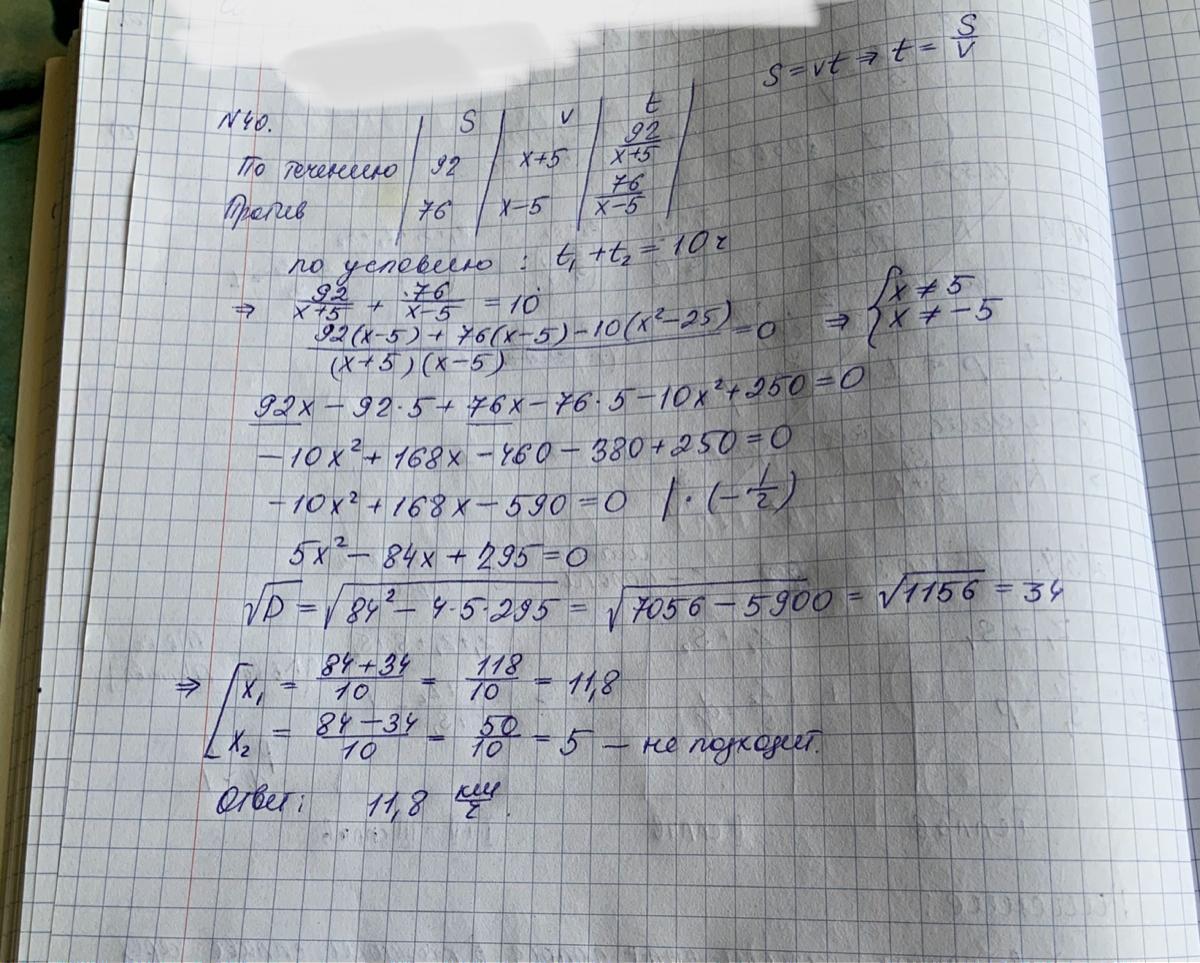 S = vt ⇒ t = S/v
N40. | S | v | t
По течению | 92 | x+5 | 92/(x+5)
Против | 76 | x-5 | 76/(x-5)
по условию : t₁ + t₂ = 10 ч
⇒ 92/(x+5) + 76/(x-5) = 10
(92(x-5) + 76(x-5) - 10(x²-25))/((x+5)(x-5)) = 0 ⇒ { x ≠ 5 x ≠ -5
92x - 92·5 + 76x - 76·5 - 10x² + 250 = 0
-10x² + 168x - 460 - 380 + 250 = 0
-10x² + 168x - 590 = 0 |·(-1/2)
5x² - 84x + 295 = 0
√D = √(84² - 4·5·295) = √(7056 - 5900) = √1156 = 34
⇒ [ x₁ = (84+34)/10 = 118/10 = 11,8
x₂ = (84-34)/10 = 50/10 = 5 — не подходит.
Ответ: 11,8 км/ч.